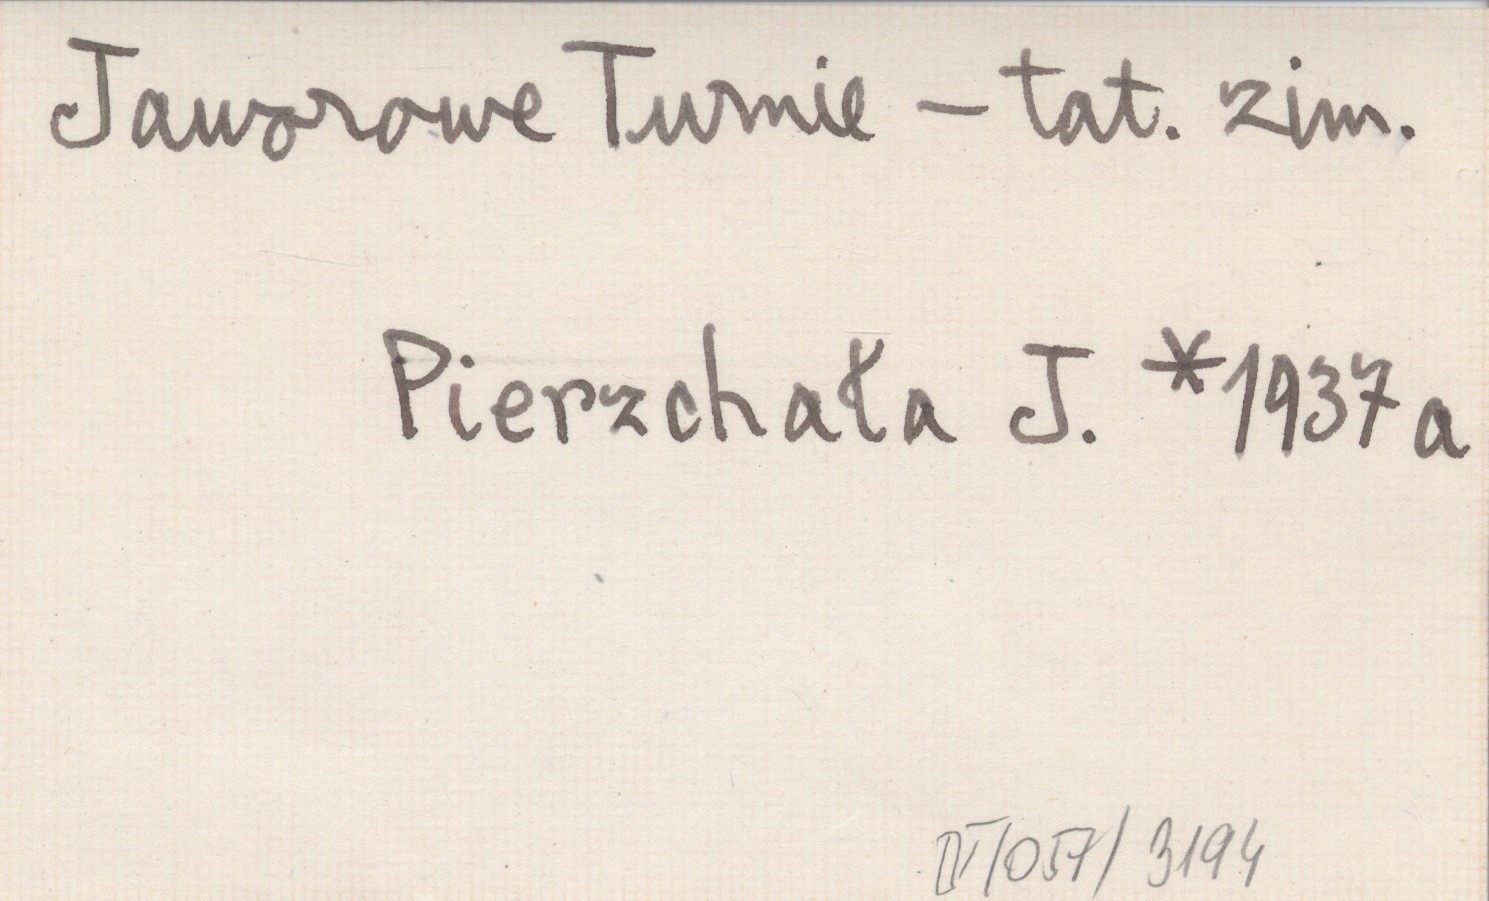 Jaworowe Turnie – tat. zim.
Pierzchała J. *1937a
IV/057/3194